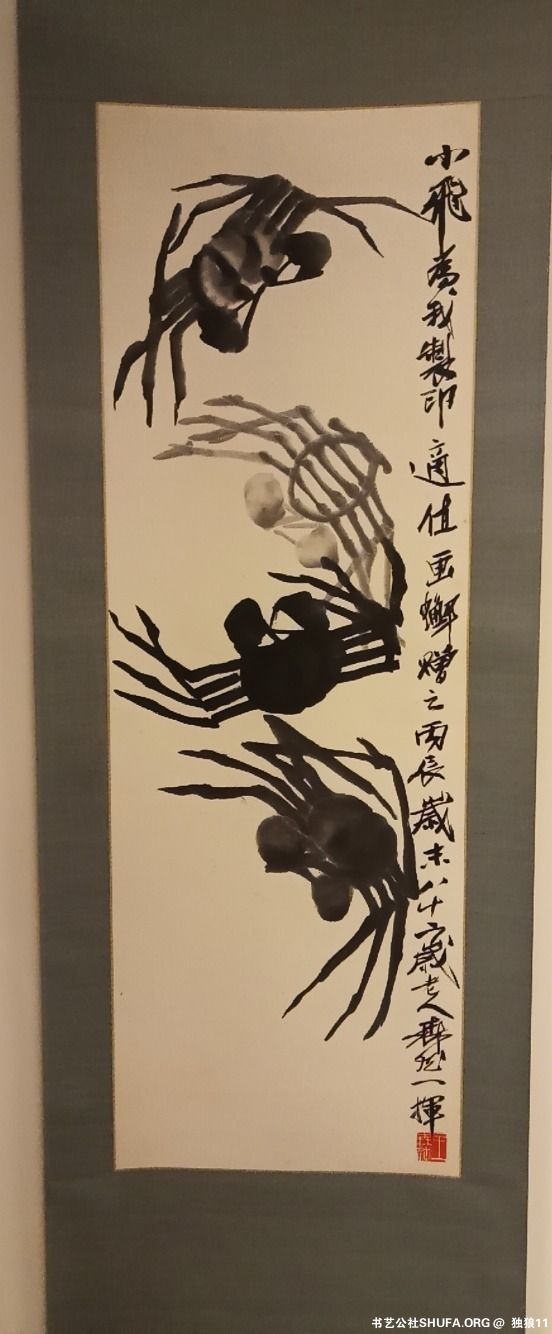 小飛為我製印適值画蠏贈之丙辰歲末八十二歲老人森然一揮
书艺公社SHUFA.ORG @ 独狼11